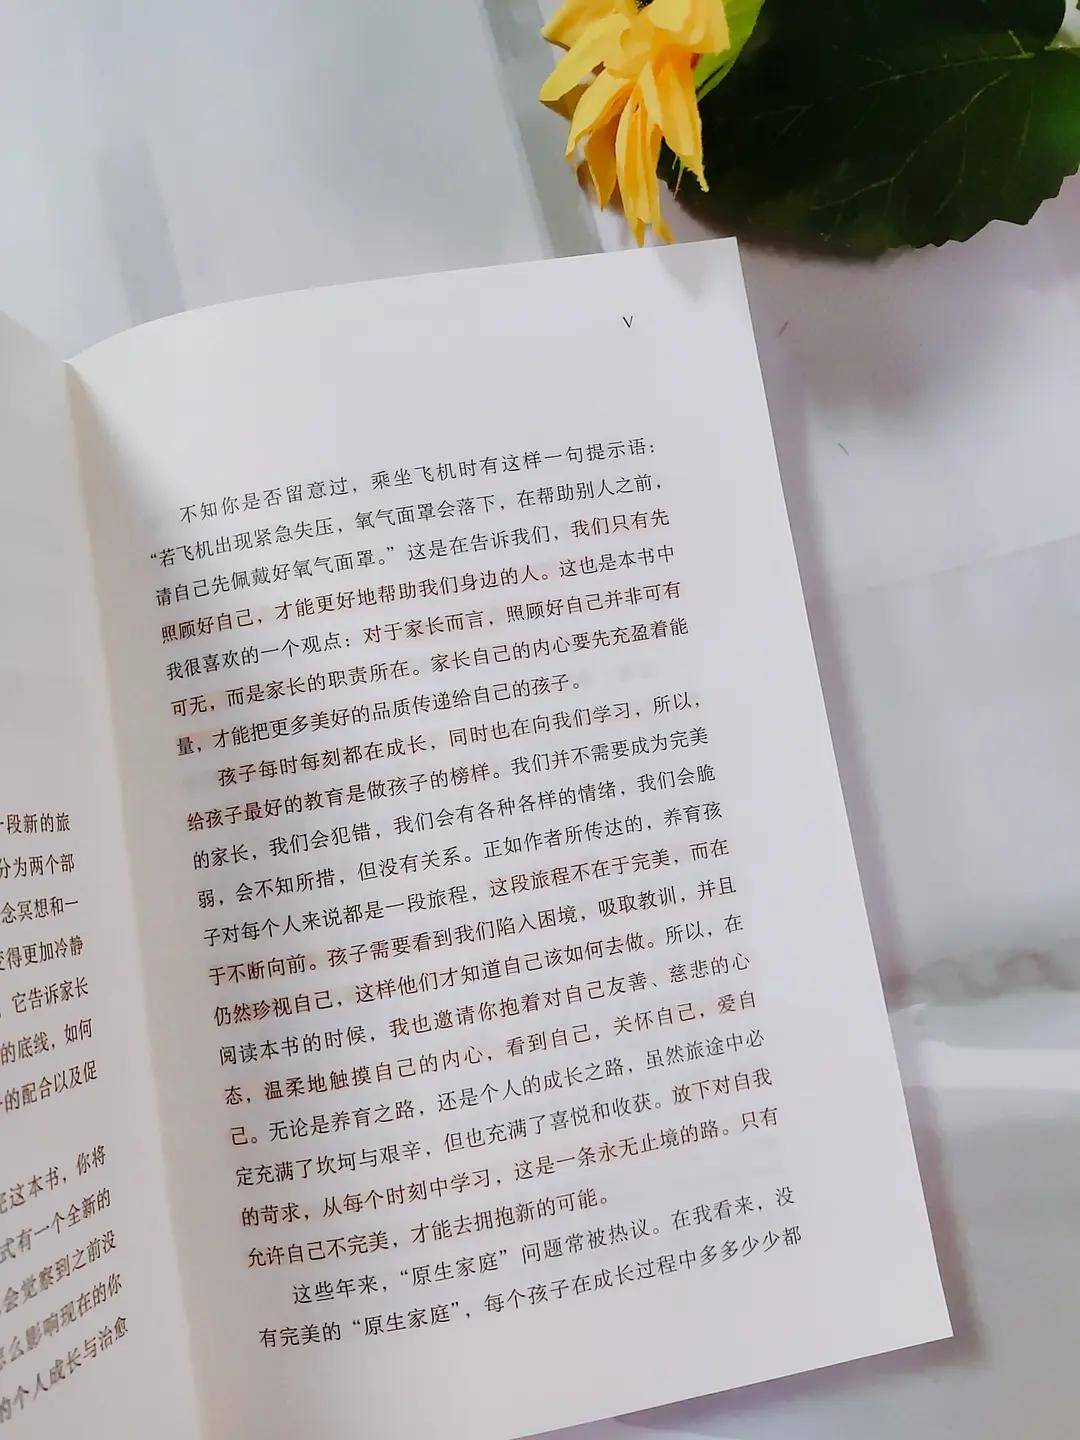 一段新的旅
分为两个部
念冥想和一
变得更加冷静
，它告诉家长
的底线，如何
的配合以及促
完这本书，你将
式有一个全新的
会觉察到之前没
怎么影响现在的你
的个人成长与治愈
V
不知你是否留意过，乘坐飞机时有这样一句提示语：
“若飞机出现紧急失压，氧气面罩会落下，在帮助别人之前，
请自己先佩戴好氧气面罩。”这是在告诉我们，我们只有先
照顾好自己，才能更好地帮助我们身边的人。这也是本书中
我很喜欢的一个观点：对于家长而言，照顾好自己并非可有
可无，而是家长的职责所在。家长自己的内心要先充盈着能
量，才能把更多美好的品质传递给自己的孩子。
孩子每时每刻都在成长，同时也在向我们学习，所以，
给孩子最好的教育是做孩子的榜样。我们并不需要成为完美
的家长，我们会犯错，我们会有各种各样的情绪，我们会脆
弱，会不知所措，但没有关系。正如作者所传达的，养育孩
子对每个人来说都是一段旅程，这段旅程不在于完美，而在
于不断向前。孩子需要看到我们陷入困境，吸取教训，并且
仍然珍视自己，这样他们才知道自己该如何去做。所以，在
阅读本书的时候，我也邀请你抱着对自己友善、慈悲的心
态，温柔地触摸自己的内心，看到自己，关怀自己，爱自
己。无论是养育之路，还是个人的成长之路，虽然旅途中必
定充满了坎坷与艰辛，但也充满了喜悦和收获。放下对自我
的苛求，从每个时刻中学习，这是一条永无止境的路。只有
允许自己不完美，才能去拥抱新的可能。
这些年来，“原生家庭”问题常被热议。在我看来，没
有完美的“原生家庭”，每个孩子在成长过程中多多少少都